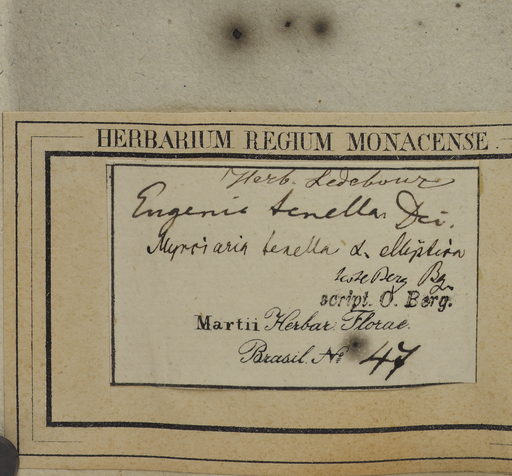 HERBARIUM REGIUM MONACENSE.
Herb. Ledebour
Eugenia tenella Dei.
Myrciaria tenella α. elliptica
teste Berg Bg.
script. O. Berg.
Martii Herbar. Florae
Brasil. No 47